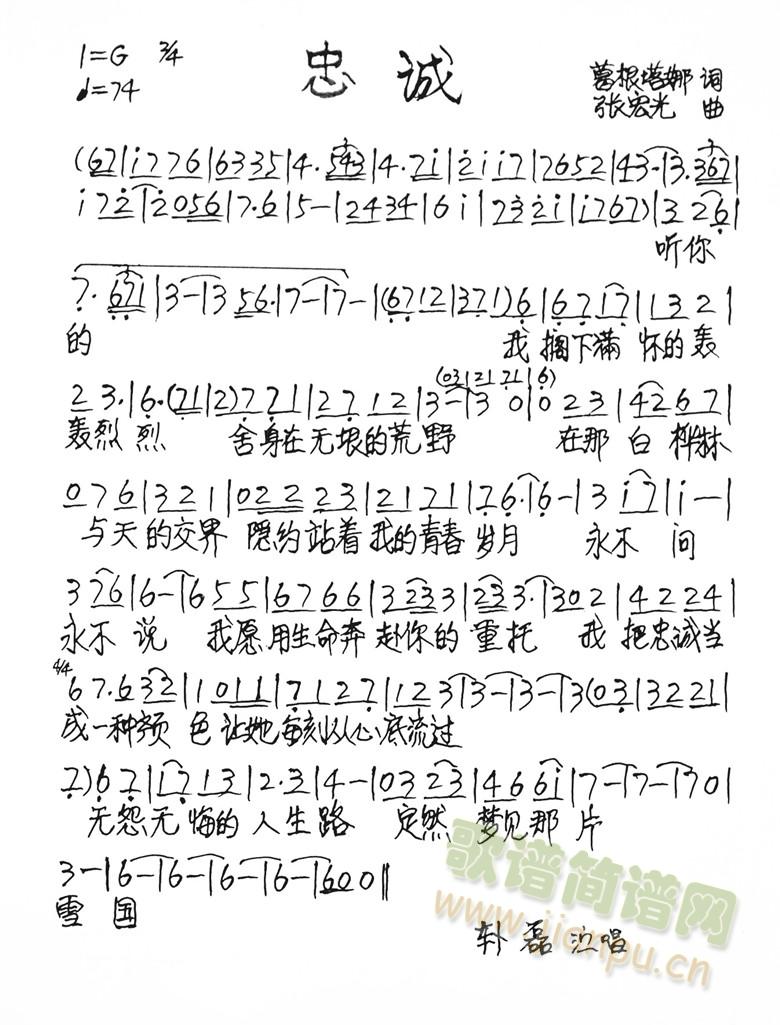 1=G 3/4
忠诚
葛根塔娜 词
♩=74
张宏光 曲
(67|i776|6335|4·543|4·7i|2ii7|7652|43-|3·367|
i72|2056|7·6|5-|2434|6i|732i|i767)|326|
听你
7·671|3-|356·|7-|7-|(6712|371)6|6717|1321|
的 我搁下满怀的轰
(03|2121|6)
23·|6·(71|2)771|2712|3-|30|023|4267|
轰烈烈 舍身在无垠的荒野 在那白桦林
076|321|02223|2171|76·|6-|3i7|i-|
与天的交界 隐约站着我的青春岁月 永不问
376|6-|655|6766|3233|233·|302|4224|
永不说 我愿用生命奔赴你的重托 我把忠诚当
4/4
67·632|1011|7127|123|3-|3-|3(03|3221|
成一种颜色让她每刻从心底流过
7)67|i713|2·3|4-|0323|466i|7-|7-|70|
无怨无悔的人生路 定然梦见那片
3-|6-|6-|6-|6-|600‖
雪国
歌谱简谱网
www.jianpu.cn
磊 演唱